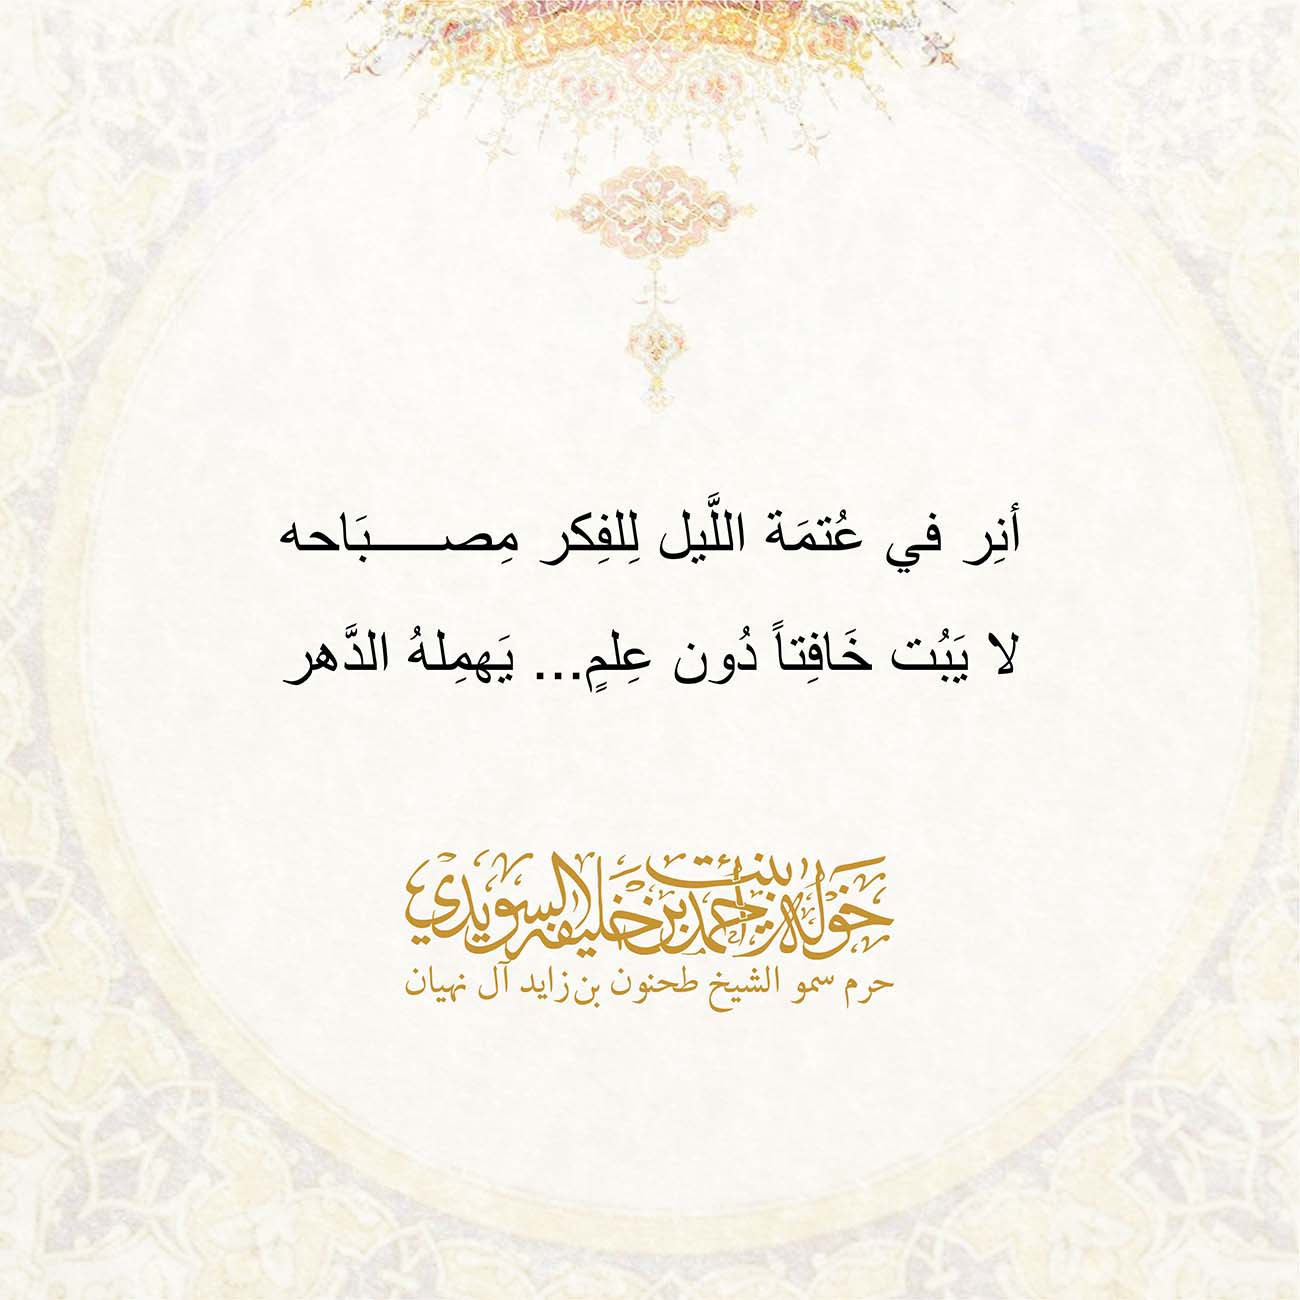 أنِر في عُتمَة اللَّيل لِلفِكر مِصـــــبَاحه
لا يَبُت خَافِتاً دُون عِلمٍ... يَهمِلهُ الدَّهر
خوله بنت احمد بن خليفه السويدي
حرم سمو الشيخ طحنون بن زايد آل نهيان